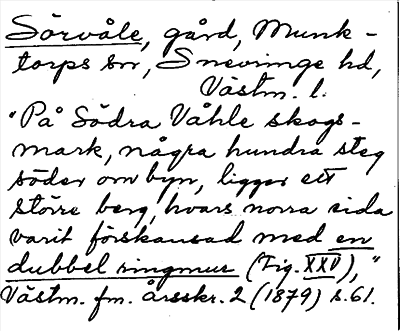 Sörvåle, gård, Munk-
torps sn, Snevringe hd,
Västm. l.
"På Södra Våhle skogs-
mark, några hundra steg
söder om byn, ligger ett
större berg, hvars norra sida
varit förskansad med en
dubbel ringmur (Fig. XXV),"
Västm. fm. årsskr. 2 (1879) s. 61.